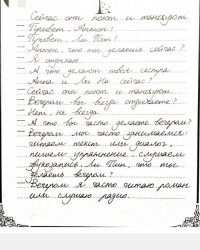 Сейчас они поют и танцуют.
Привет, Антон!
Привет, Ли Пин!
Антон, что ты делаешь сейчас?
Я отдыхаю.
А что делает твоя сестра
Анна и Ли На сейчас?
Сейчас они поют и танцуют.
Вечером вы всегда отдыхаете?
Нет, не всегда.
А что вы часто делаете вечером?
Вечером мы часто занимаемся:
читаем текст или диалог,
пишем упражнение, слушаем
аудиозапись. Ли Пин, что ты
делаешь вечером?
Вечером я часто читаю роман
или слушаю радио.